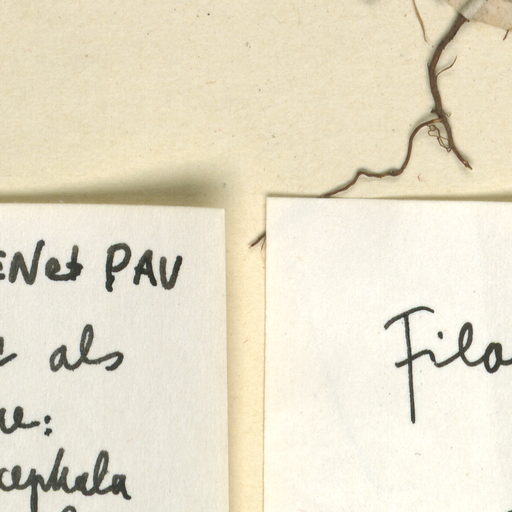 ENet PAV
als
cephala
Filo